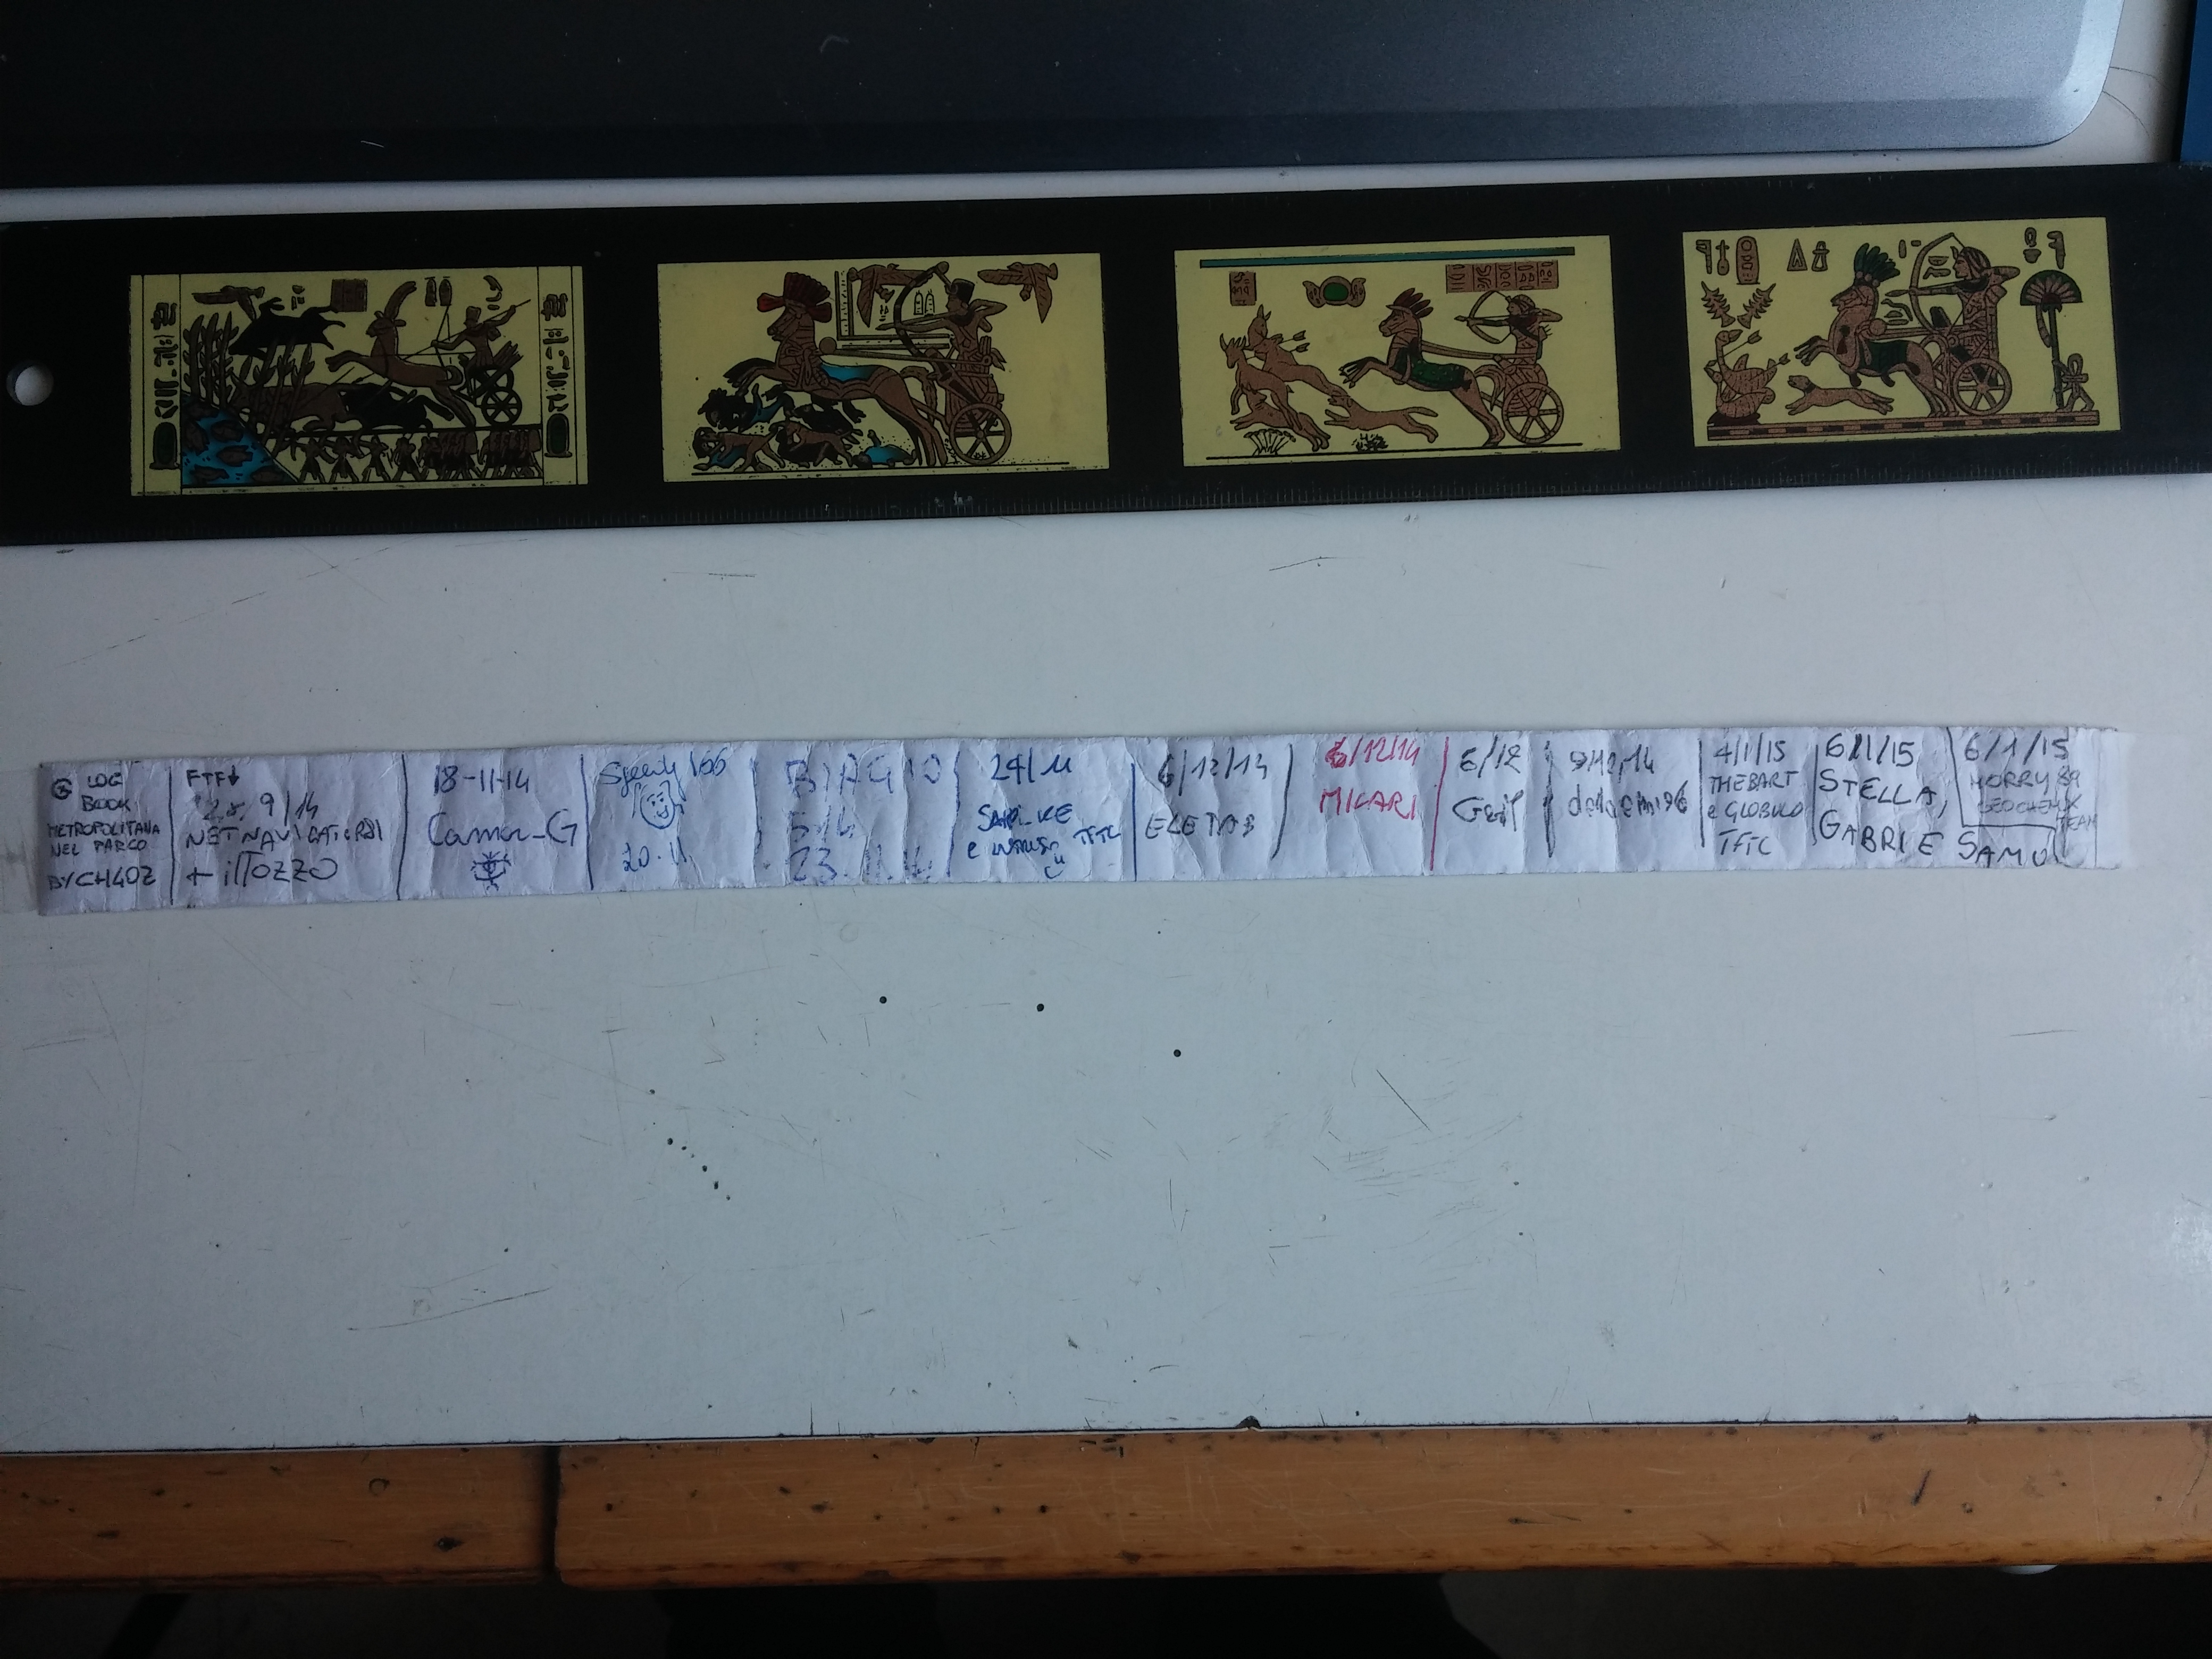 LOG
BOOK
METROPOLITANA
NEL PARCO
BY CH4OZ
FTF↓
9/14
NETNAVIGATOR81
+ ilTozzo
18-11-14
Camor-G
Speedy166
20.11
BIAGIO
514
23.11.14
24/11
e TFTC
6/12/14
ELETAB
6/12/14
MIKARI
6/12
9/12/14
4/1/15
THEBART
e GLOBULO
TFTC
6/1/15
STELLA,
GABRI E SAMU
6/1/15
HORRY89
GEOCHEMX
TEAM